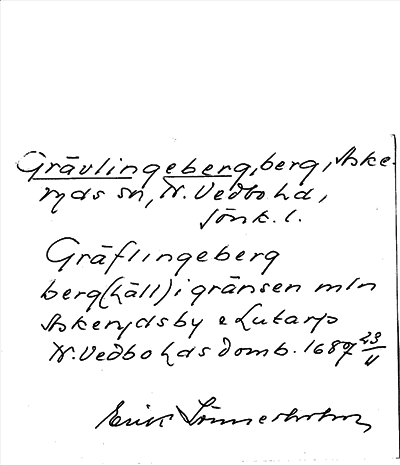 Grävlingeberg, berg, Aske-
ryds sn, N. Vedbo hd,
Jönk. l.
Gräflingeberg
berg (häll) i gränsen mln
Askerydsby o Lutarp
N. Vedbo hds domb. 1689 23/11
Erik Linnerholm